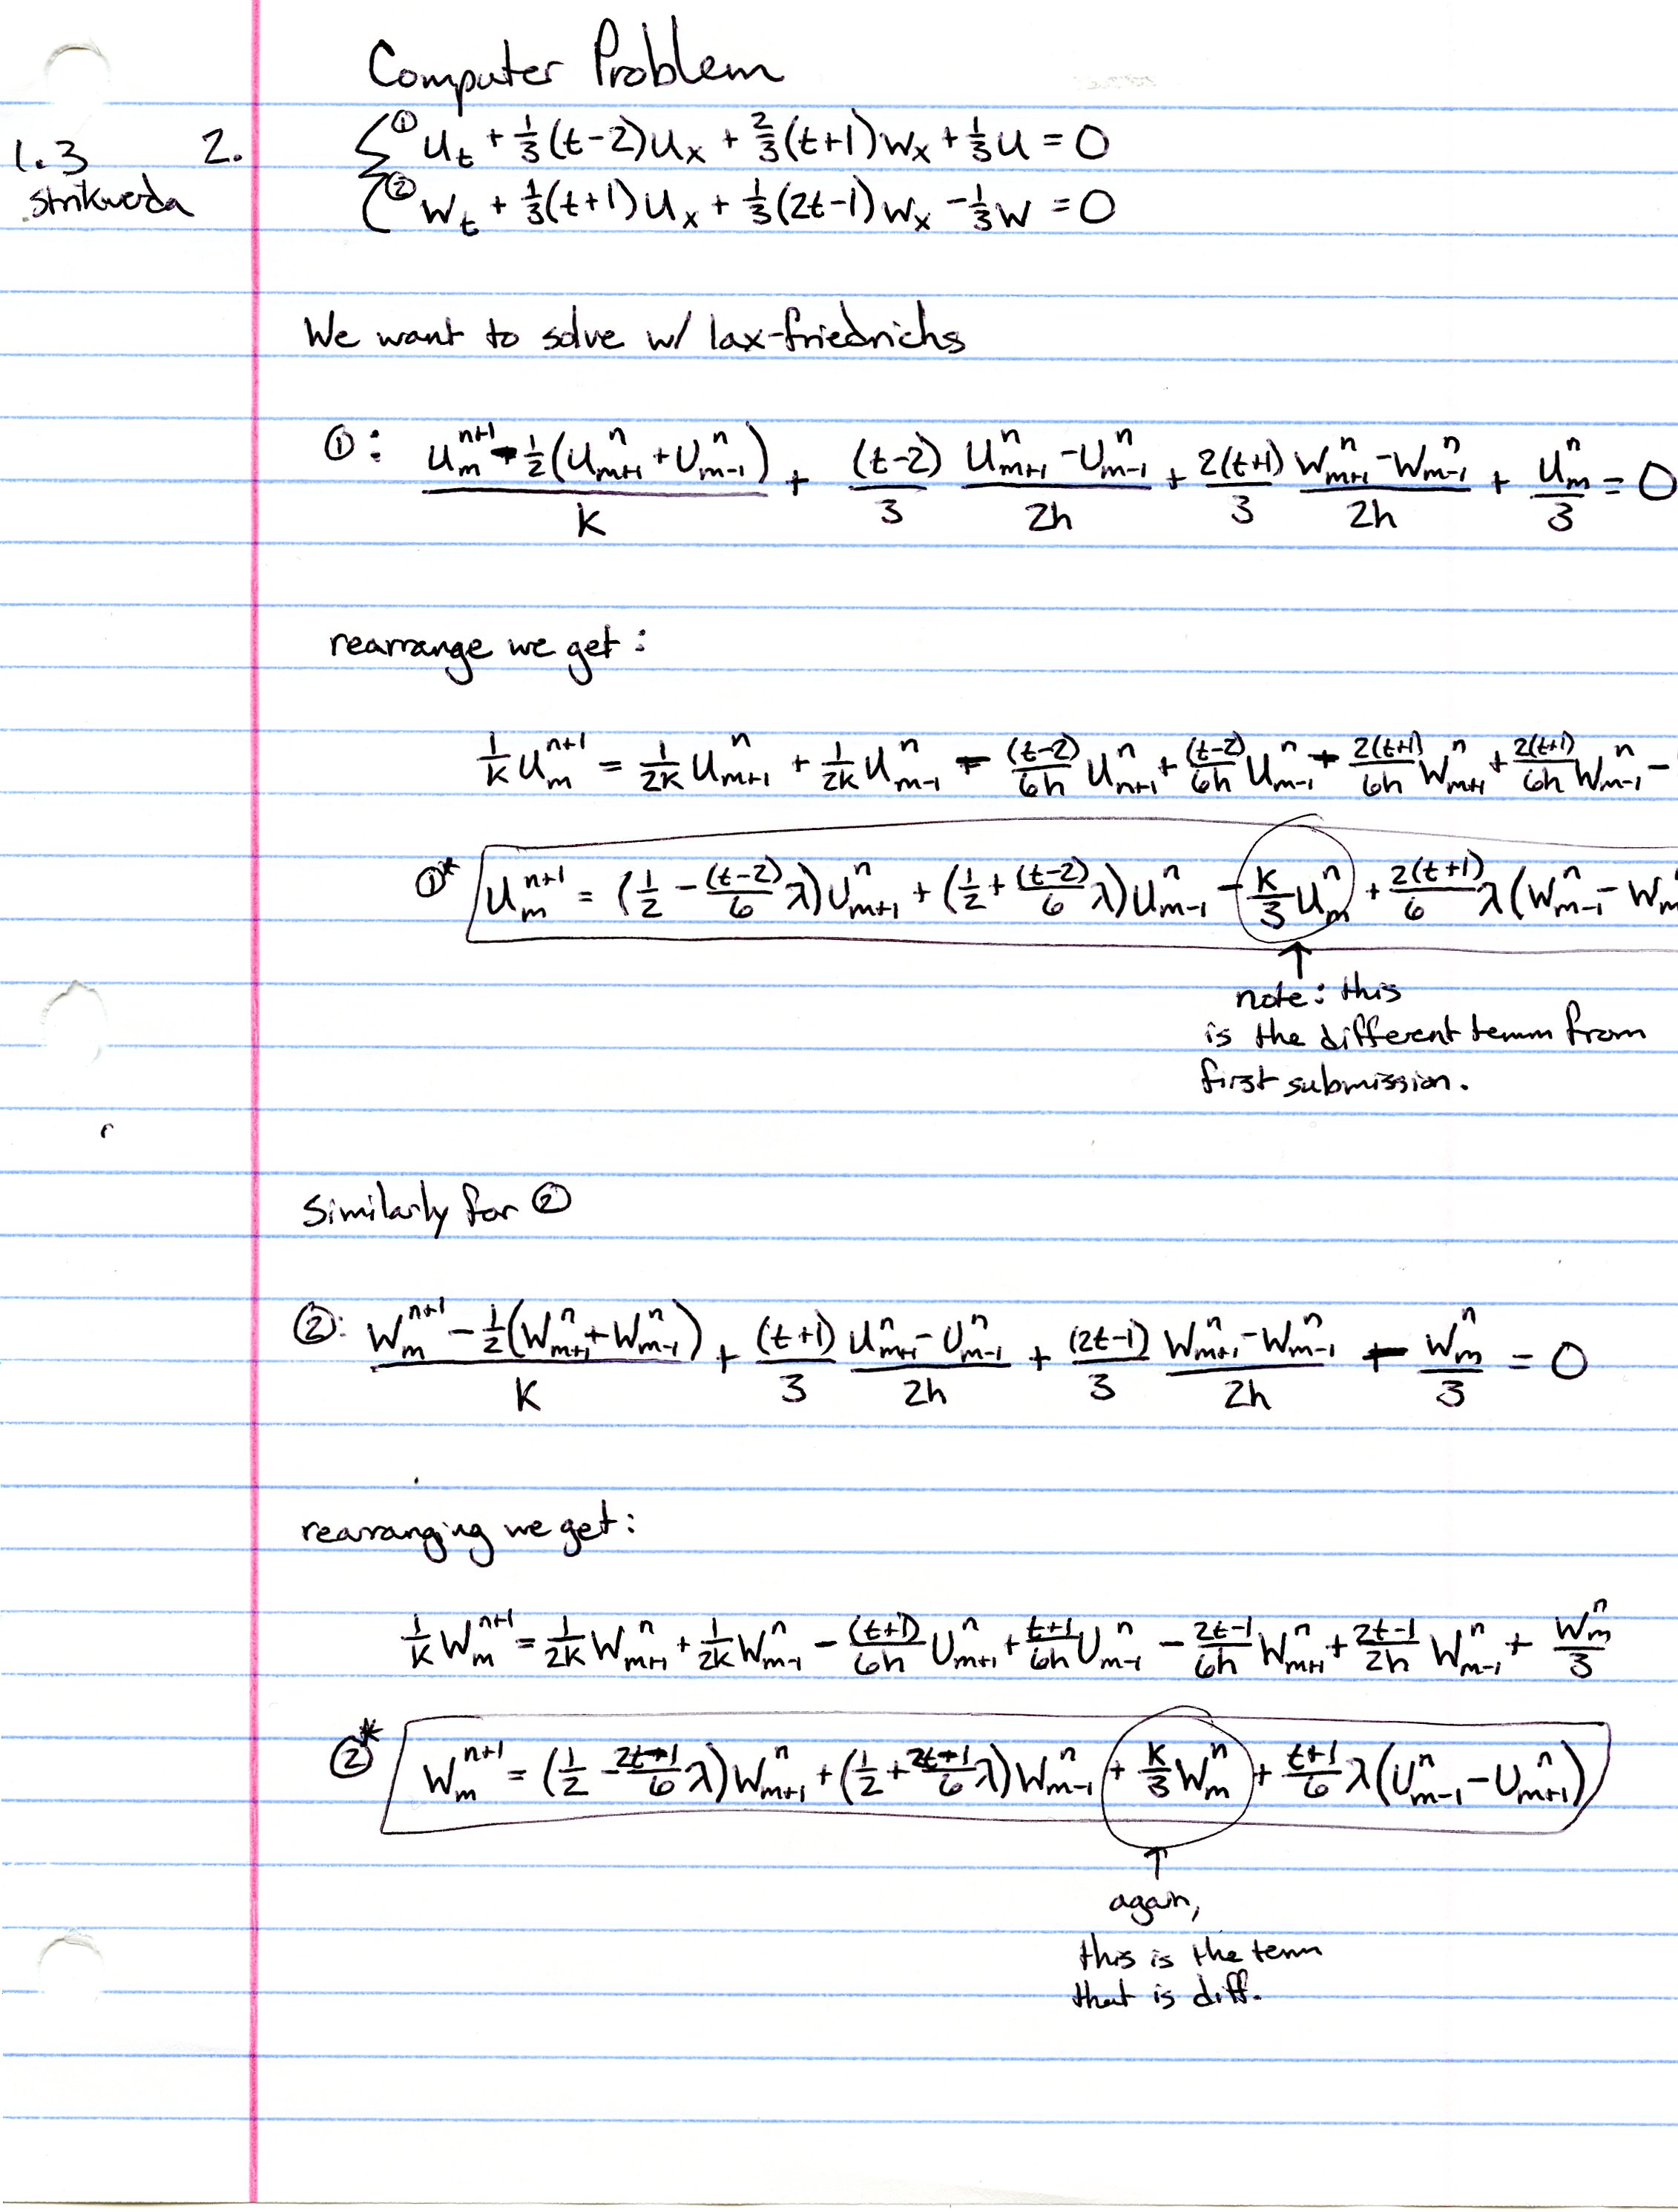 Computer Problem
1.3 2. { ① u_t + 1/3(t-2)u_x + 2/3(t+1)w_x + 1/3u = 0
Strikwerda ② w_t + 1/3(t+1)u_x + 1/3(2t-1)w_x - 1/3w = 0
We want to solve w/ lax-friedrichs
①: (u_m^{n+1} - 1/2(u_{m+1}^n + u_{m-1}^n))/k + (t-2)/3 (u_{m+1}^n - u_{m-1}^n)/2h + 2(t+1)/3 (w_{m+1}^n - w_{m-1}^n)/2h + u_m^n/3 = 0
rearrange we get:
1/k u_m^{n+1} = 1/2k u_{m+1}^n + 1/2k u_{m-1}^n - (t-2)/6h u_{n+1}^n + (t-2)/6h u_{m-1}^n - 2(t+1)/6h w_{m+1}^n + 2(t+1)/6h w_{m-1}^n -
①* u_m^{n+1} = (1/2 - (t-2)/6 λ)u_{m+1}^n + (1/2 + (t-2)/6 λ)u_{m-1}^n - k/3 u_m^n + 2(t+1)/6 λ(w_{m-1}^n - w_m
note: this
is the different temm from
first submission.
Similarly for ②
②: (w_m^{n+1} - 1/2(w_{m+1}^n + w_{m-1}^n))/k + (t+1)/3 (u_{m+1}^n - u_{m-1}^n)/2h + (2t-1)/3 (w_{m+1}^n - w_{m-1}^n)/2h - w_m^n/3 = 0
rearanging we get:
1/k w_m^{n+1} = 1/2k w_{m+1}^n + 1/2k w_{m-1}^n - (t+1)/6h u_{m+1}^n + t+1/6h u_{m-1}^n - 2t-1/6h w_{m+1}^n + 2t-1/2h w_{m-1}^n + w_m^n/3
②* w_m^{n+1} = (1/2 - 2t-1/6 λ)w_{m+1}^n + (1/2 + 2t-1/6 λ)w_{m-1}^n + k/3 w_m^n + t+1/6 λ(u_{m-1}^n - u_{m+1}^n)
again,
this is the term
that is diff.